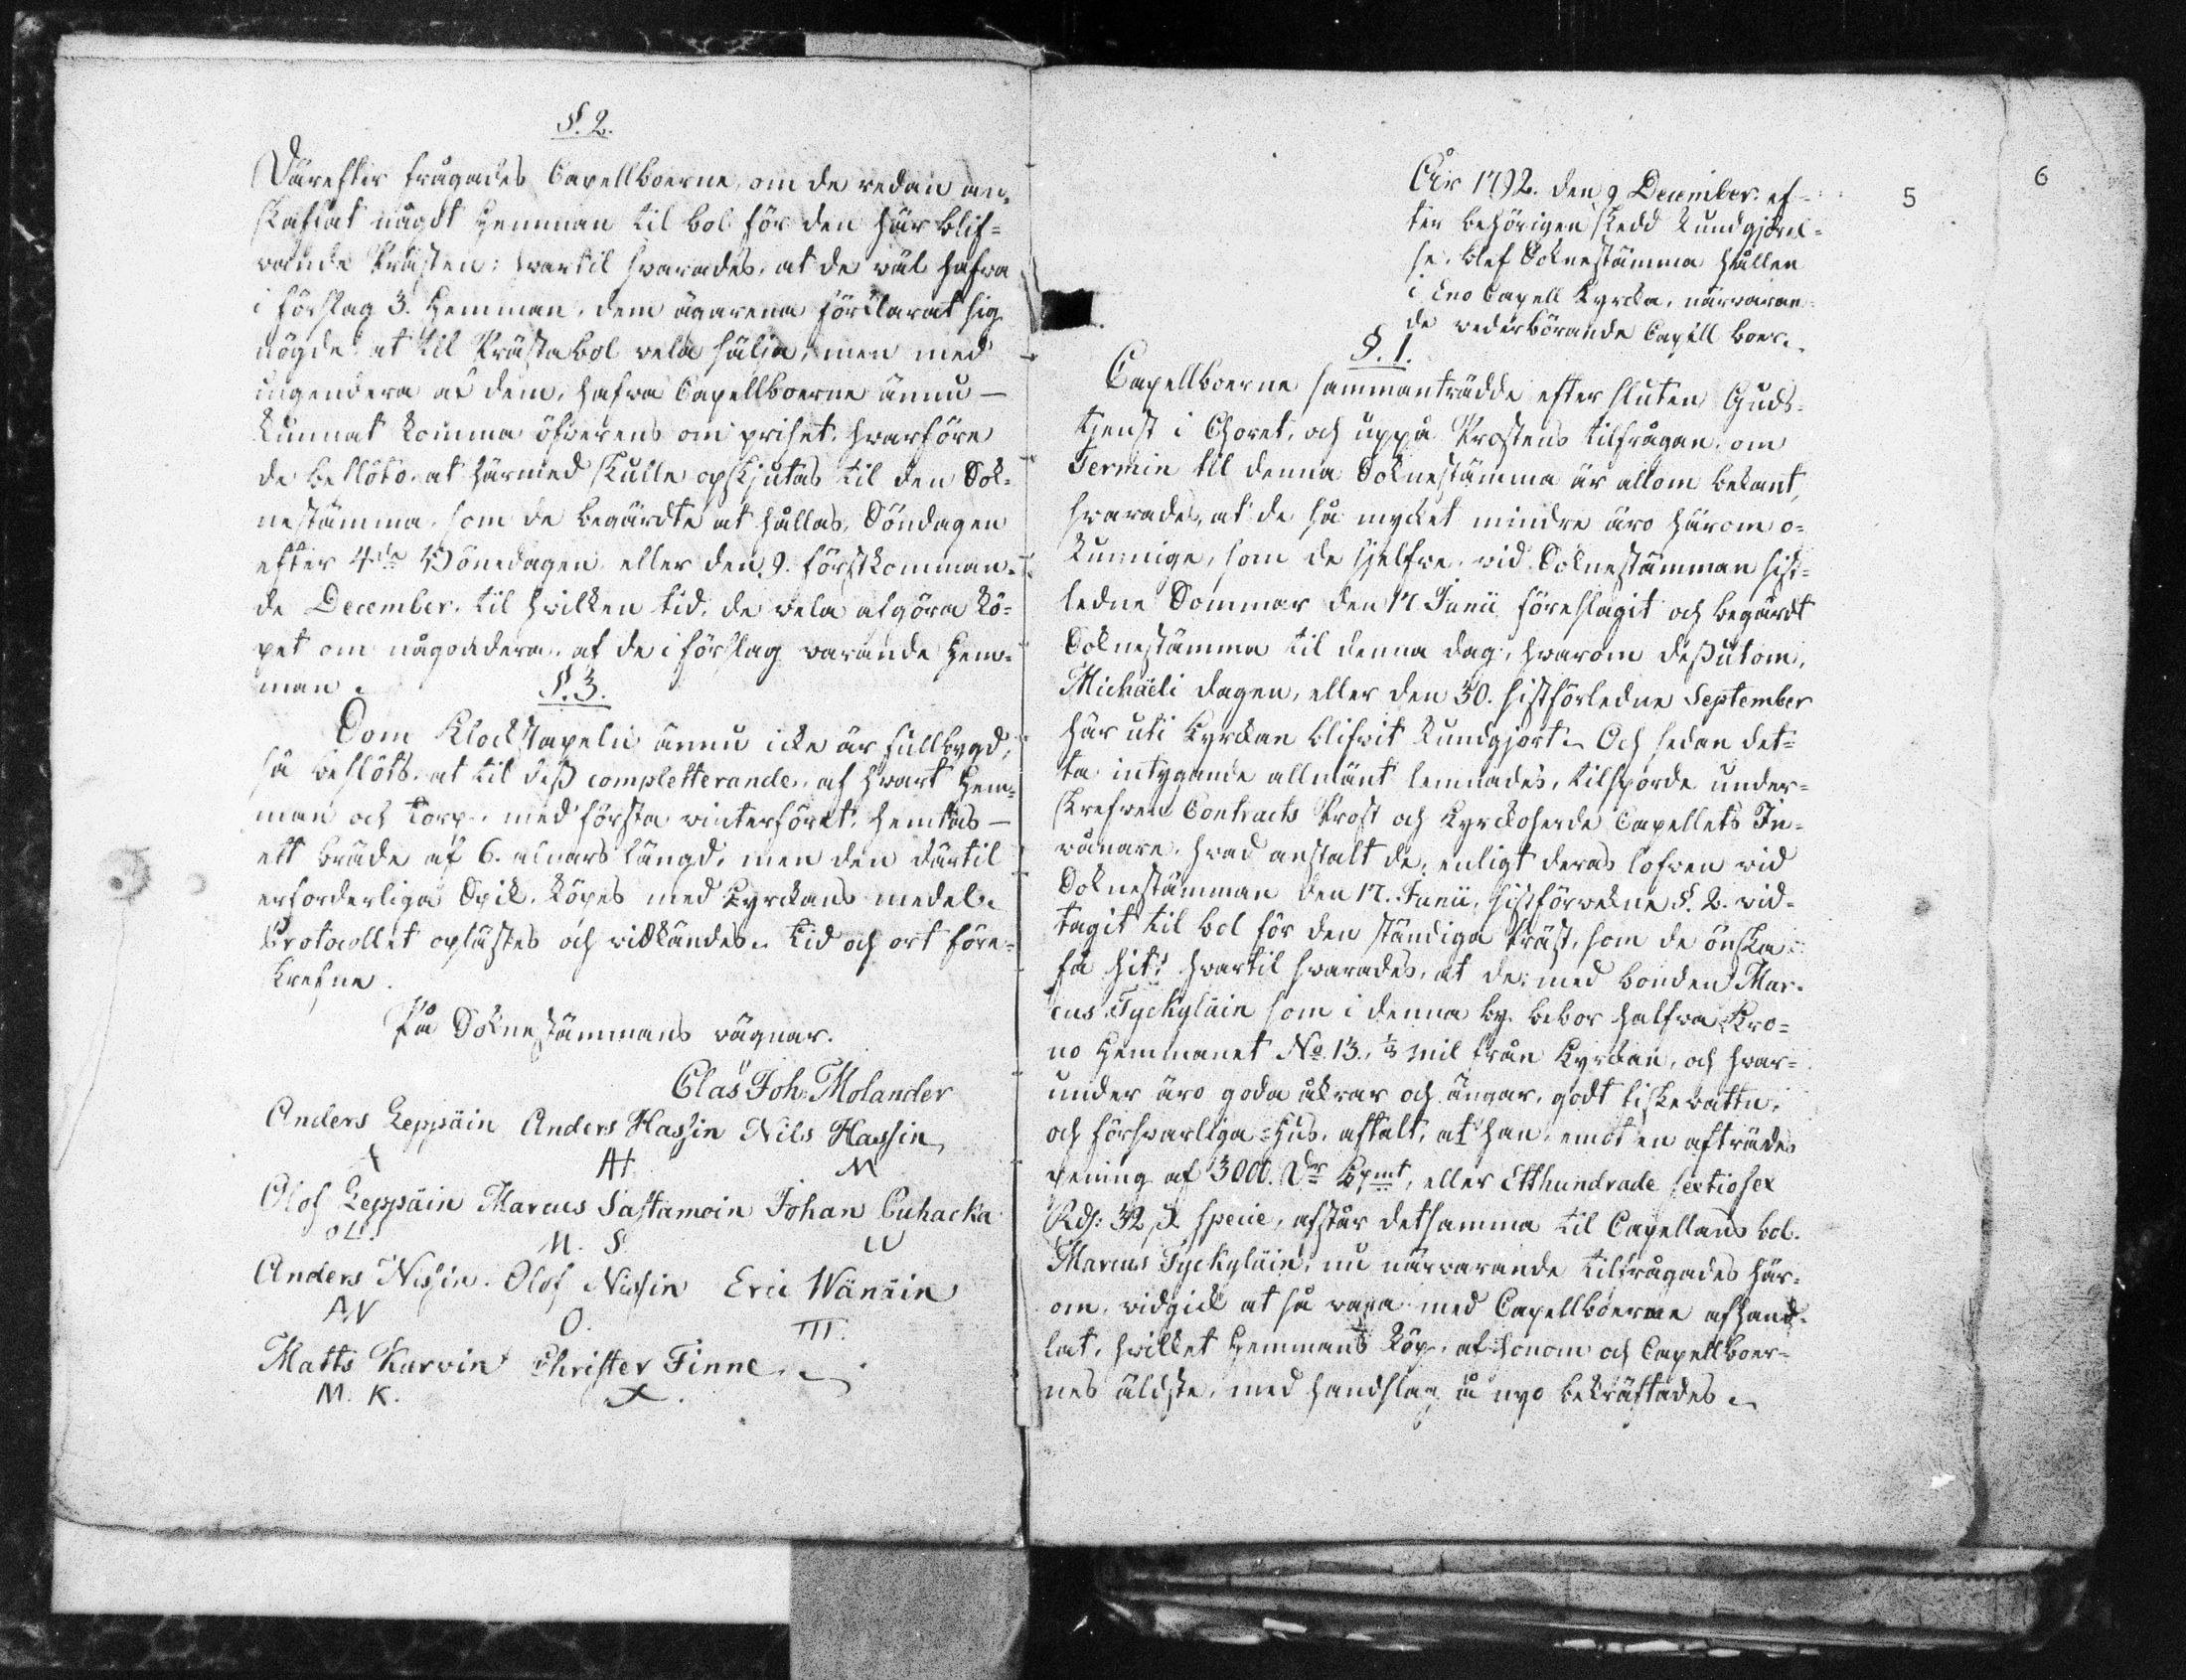 §. 2.
Därefter frågades Capellboerne, om de redan an-
skaffat någåt Hemman til bol för den här blif-
wande Prästen: hwartil swarades, at de wäl hafwa
i förslag 3. Hemman, dem ägarena förklarat sig
nögde at til Prästabol wela sälja, men med
ingendera af dem, hafwa Capellboerne ännu —
kunnat komma öfwerens om priset, hwarföre
de beslöto, at härmed skulle opskjutas til den Sok-
nestämma, som de begärdte at hållas, Söndagen
efter 4de Bönedagen eller den 9. förstkomman-
de December, til hwilken tid, de wela afgöra kö-
pet om någondera, af de i förslag warande Hem-
man.
§. 3.
Som Klockstapeln ännu icke är fullbygd,
så beslöts, at til dess completterande, af hwart Hem-
man och Torp, med första winterföret, hemtas —
ett bräde af 6. alnars längd, men den därtil
erforderliga Spik, köpes med Kyrckans medel.
Protocollet oplästes och widkändes. Tid och ort före-
skrefne.
På Soknestämmans wägnar.
Clas Joh. Molander
Anders Leppäin Anders Hassin Nils Hassin
X AH M
Olof Leppäin Marcus Sastamoin Johan Cuhacka
OL. M. S W
Anders Nissin. Olof Nissin Eric Wänäin
A.V O. III.
Matts Karvin Christer Finne.
M. K. X.
5
6
År 1792. den 9 December. ef-
ter behörigen skedd kundgjörel-
se, blef Soknestämma hållen
i Eno Capell Kyrcka, närwaran-
de wederbörande Capell boer.
§. 1.
Capellboerne sammanträdde efter sluten Guds-
tjenst i Choret, och uppå Prostens tilfrågan, om
Termin til denna Soknestämma är allom bekant,
swarades, at de så mycket mindre äro härom o-
kunnige, som de sjelfwe, wid Soknestämman sist-
ledne Sommar den 17 Junii föreslagit och begärdt
Soknestämma til denna dag, hwarom dessutom,
Michaëli dagen, eller den 30. sistförledne September
här uti Kyrckan blifwit kundgjort. Och sedan det-
ta intygande allmänt lemnades, tilsporde under-
skrefwen Contracts Prost och Kyrckoherde Capellets In-
wånare, hwad anstalt de, enligt deras löfwen wid
Soknestämman den 17. Junii, sistförwekne §. 2. wid-
tagit til bol för den ständiga Präst, som de önska
få hit? hwartil swarades, at de, med bonden Mar-
cus Tyckyläin som i denna by bebor halfwa Kro-
no Hemmanet No 13, ½ mil från Kyrckan, och hwar-
under äro goda åkrar och ängar, godt fiskewattn,
och förswarliga Hus, aftalt, at han, emot en afträdes
pening af 3000. Dr Kpmt, eller Etthundrade sextiosex
Rds: 32 ß specie, afstår detsamma til Capellans bol.
Marcus Tyckyläin, nu närwarande tilfrågades här-
om, widgick at så wara med Capellboerne afhand-
lat, hwilket Hemmans köp, af honom och Capellboer-
nes äldste, med handslag å nyo bekräftades.